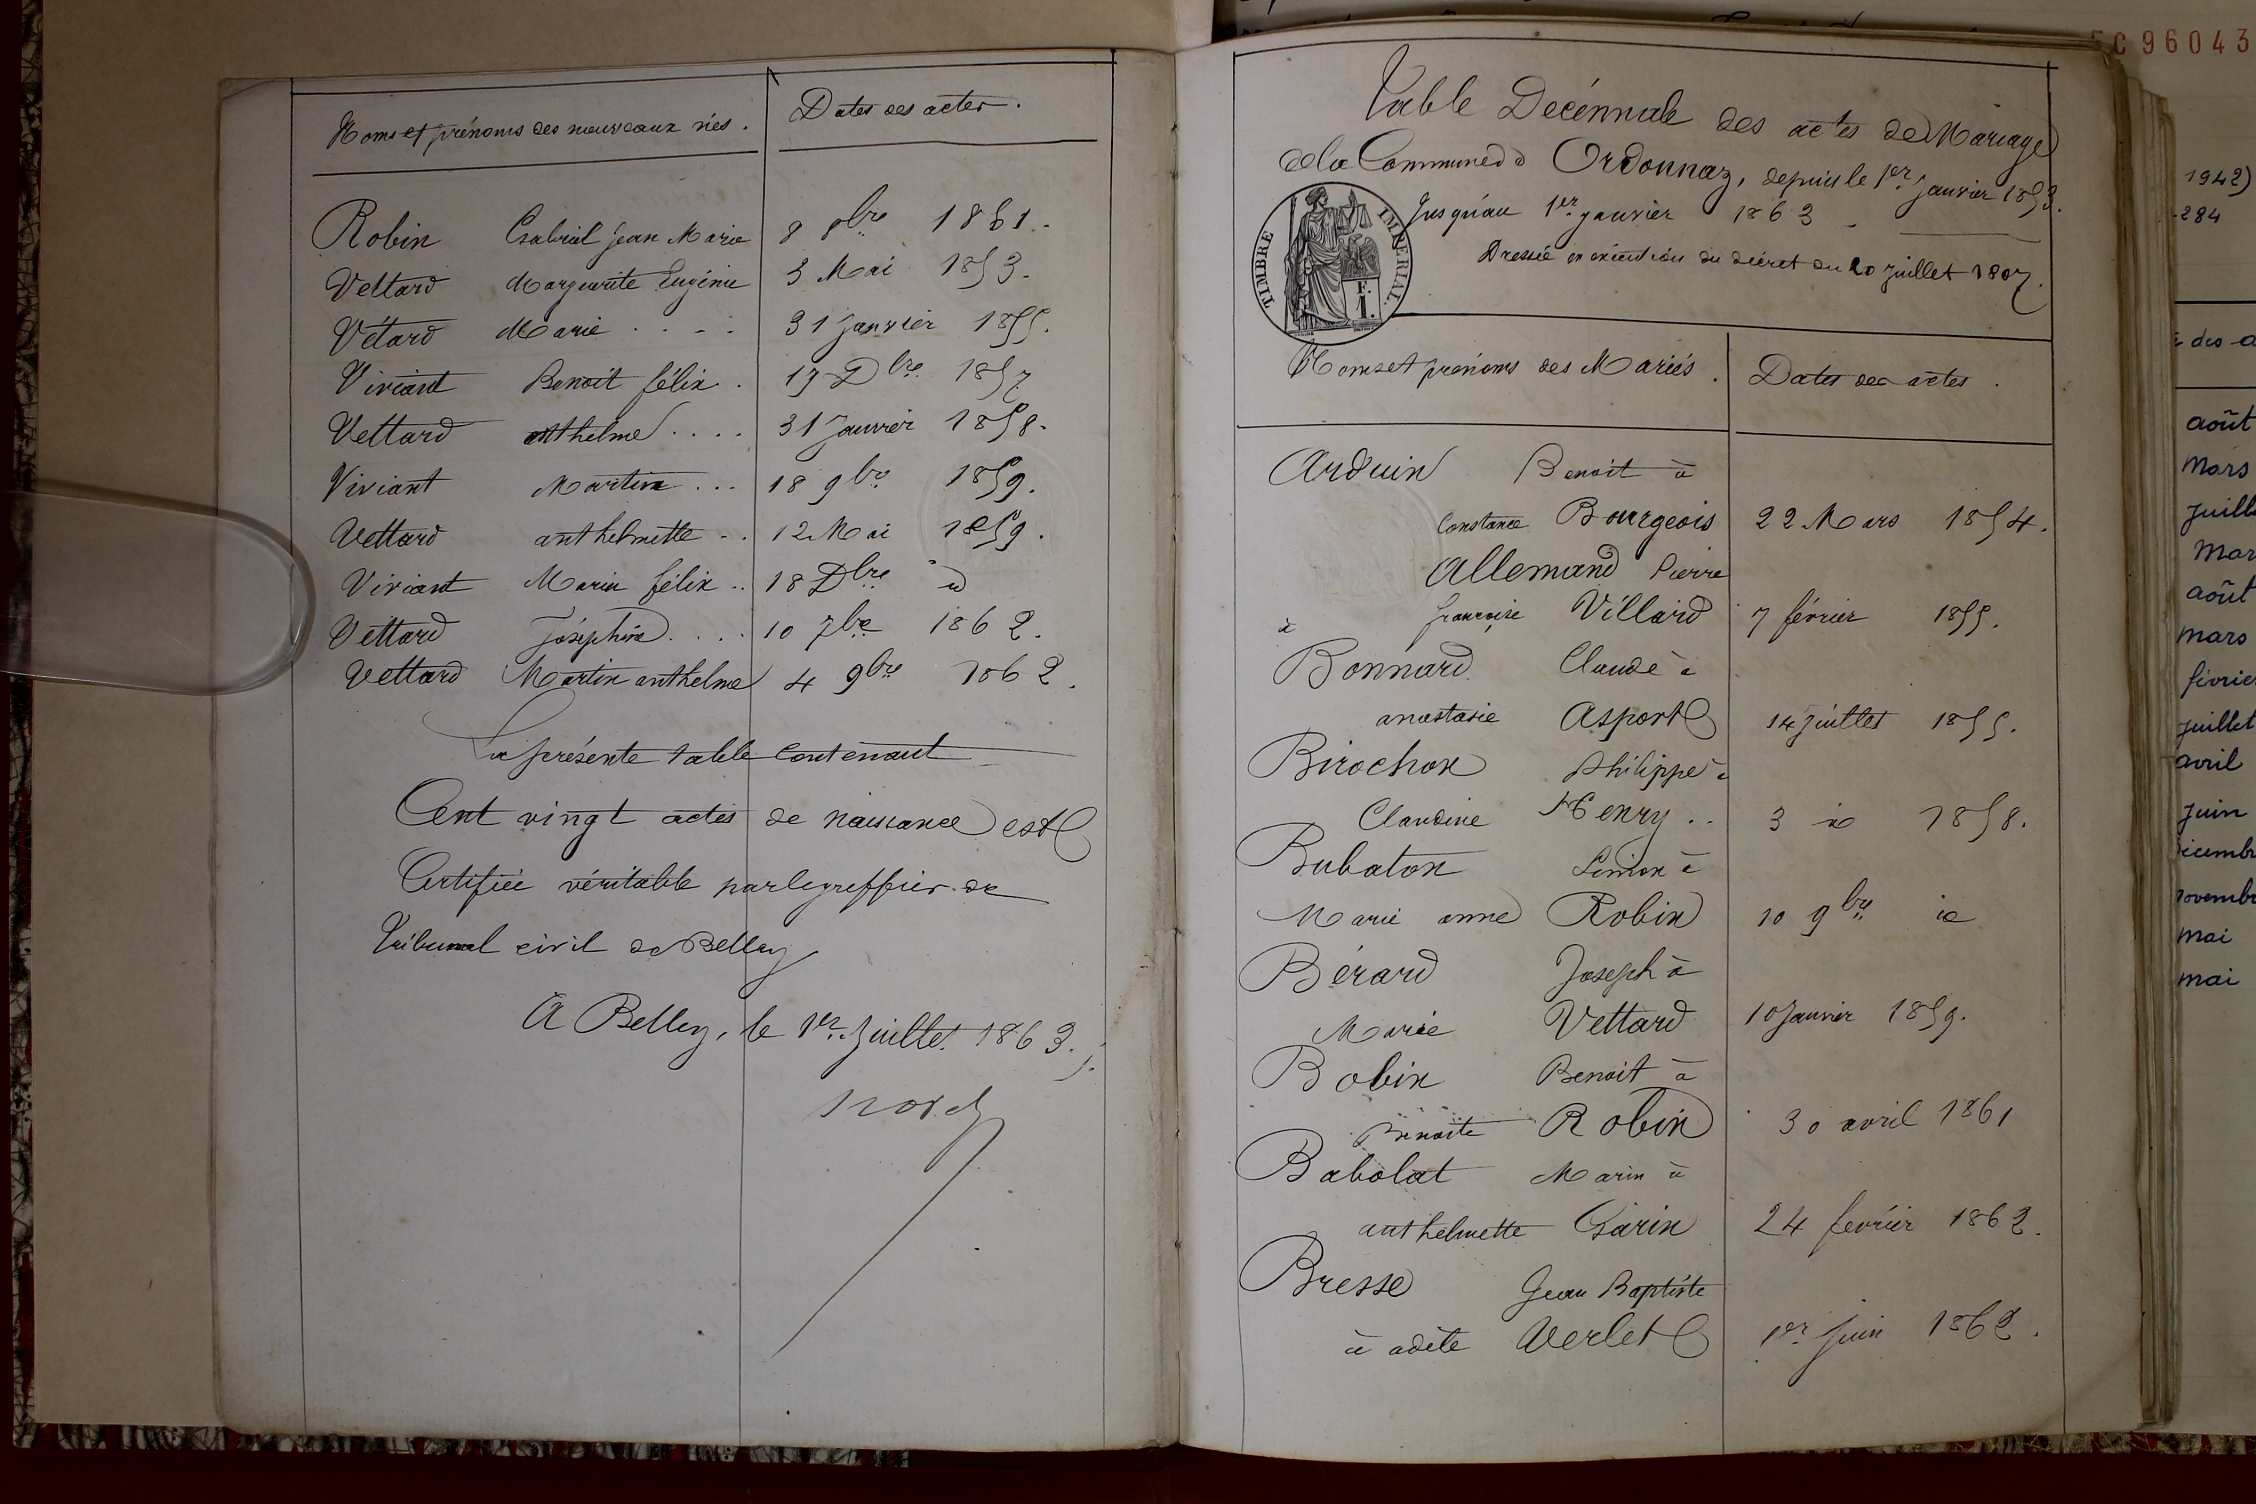 Noms et prénoms des nouveaux nés. Dates des actes.
Robin Gabriel Jean Marie 8 8bre 1861.
Vettard Marguerite Eugénie 3 Mai 1853.
Vétard Marie . . . . 31 janvier 1855.
Viviant Benoit félix . 17 Dbre 1857
Vettard anthelme . . . . 31 Janvier 1858.
Viviant Martin . . . 18 9bre 1859.
Vettard anthelmette . . 12 Mai 1859.
Viviant Marin félix .. 18 Dbre id
Vettard Joséphine . . . . 10 7bre 1862.
Vettard Martin anthelme 4 9bre 1862.
La présente table contenant
Cent vingt actes de naissance est
Certifiée véritable par le greffier de
Tribunal civil de Belley
A Belley, le 1er Juillet 1863.
Table Decénnale des actes de Mariage
de la Commune d' Ordonnaz, depuis le 1er Janvier 1853.
Jusqu'au 1er janvier 1863
Dressée en exécution du décret du 20 juillet 1807.
TIMBRE IMPERIAL.
E.
I.
Noms et prénoms des Mariés. Dates des actes.
Arduin Benoit à
Constance Bourgeois 22 Mars 1854.
Allemand Pierre
à françoise Villard 7 février 1855.
Bonnard Claude à
anastasie Asport 14 juillet 1855.
Birochon Philippe à
Claudine Henry .. 3 id 1858.
Bubaton Simon à
Marie anne Robin 10 9bre id
Bérard Joseph à
Marie Vettard 10 Janvier 1859.
Bobin Benoit à
Benoite Robin 30 avril 1861
Babolat Marin à
anthelmette Garin 24 fevrier 1862.
Bresse Jean Baptiste
à adèle Verlet 1er Juin 1862.
C 96043
1942)
284
août
Mars
Juill
Mar
août
mars
févrie
juillet
avril
juin
icembr
novembr
mai
mai